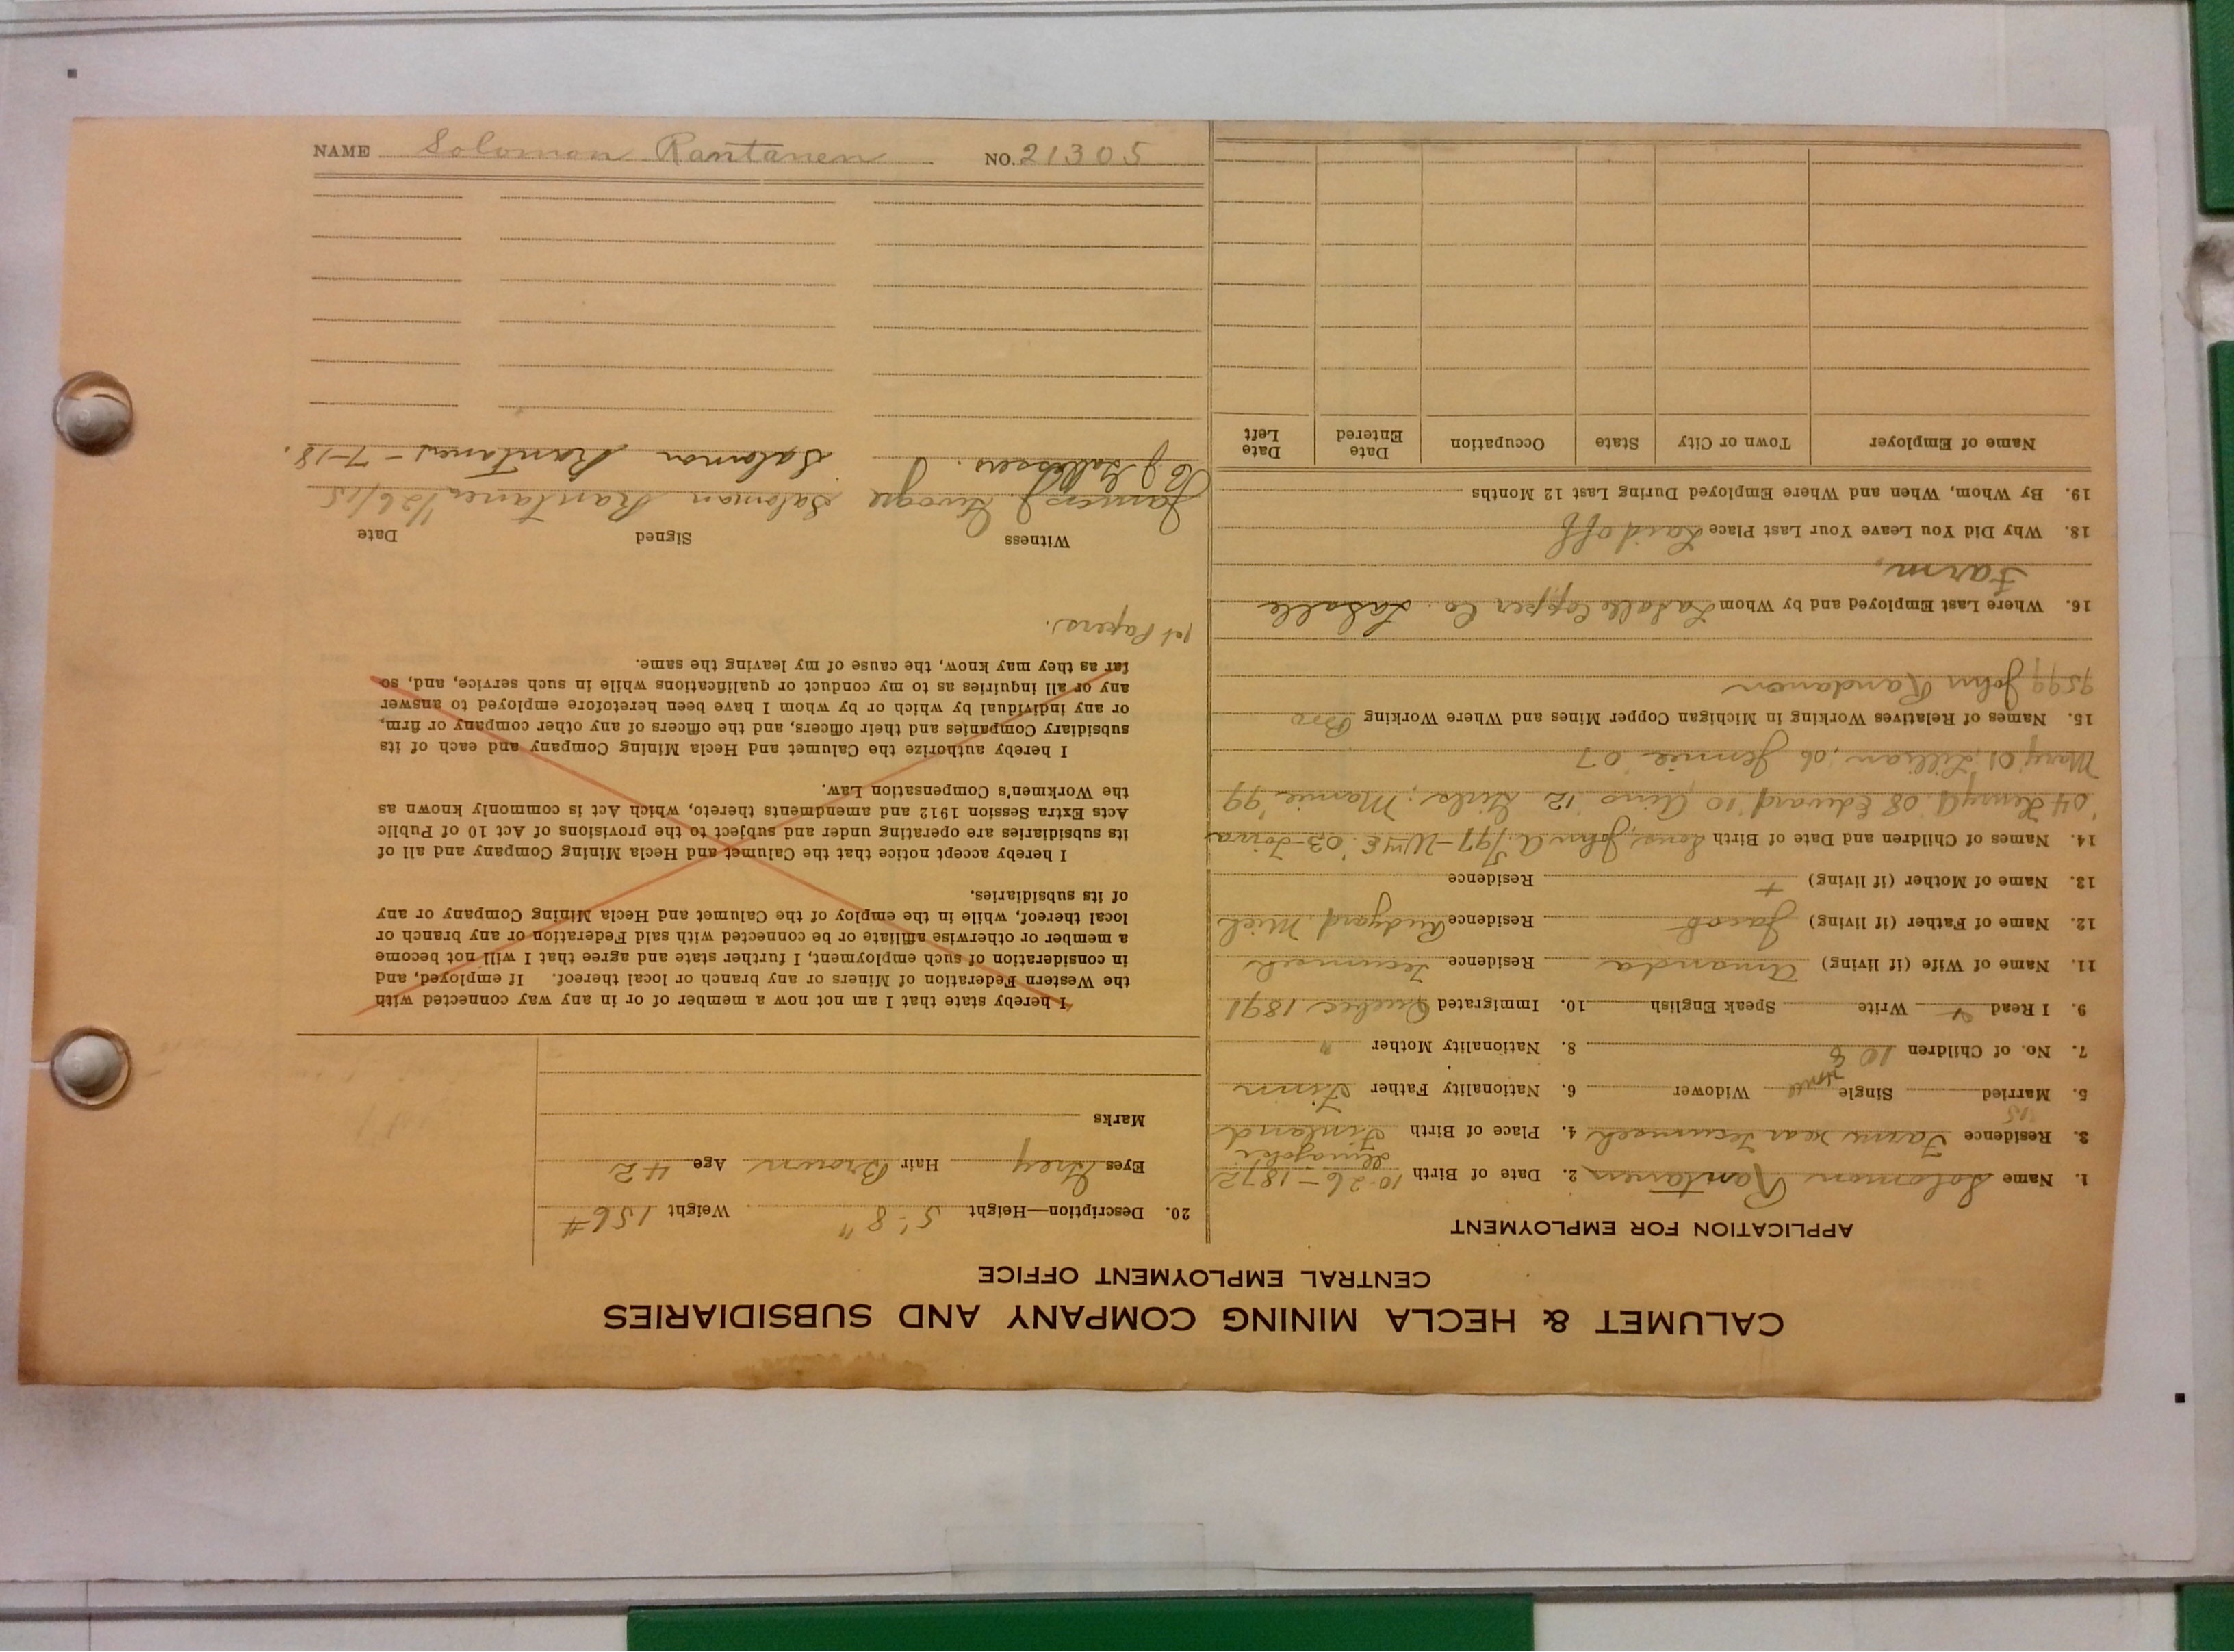 CALUMET & HECLA MINING COMPANY AND SUBSIDIARIES
CENTRAL EMPLOYMENT OFFICE
APPLICATION FOR EMPLOYMENT
1. Name Solomon Rantanen 2. Date of Birth 10-26-1872
3. Residence Farm near Tecumseh 4. Place of Birth Finland
'15
5. Married Single Widower 6. Nationality Father Finn
7. No. of Children 10 8 8. Nationality Mother "
9. I Read + Write Speak English 10. Immigrated Quebec 1891
11. Name of Wife (if living) Amanda Residence Tecumseh
12. Name of Father (if living) Jacob Residence Rudyard Mich
13. Name of Mother (if living) + Residence
14. Names of Children and Date of Birth Sons, John A. '97 - Wm E. '03 -
'04 Henry A. '08 Edward '10 Aino '12 Girls; Mamie '99
Mary '01, Lillian, '06 Jennie '07
15. Names of Relatives Working in Michigan Copper Mines and Where Working Bro
9599 John Randanen
16. Where Last Employed and by Whom LaSalle Copper Co. LaSalle
Farm,
18. Why Did You Leave Your Last Place Laid off
19. By Whom, When and Where Employed During Last 12 Months
Name of Employer Town or City State Occupation Date Entered Date Left
20. Description—Height 5' 8" Weight 156 #
Eyes Grey Hair Brown Age 42
Marks
I hereby state that I am not now a member of or in any way connected with
the Western Federation of Miners or any branch or local thereof. If employed, and
in consideration of such employment, I further state and agree that I will not become
a member or otherwise affiliate or be connected with said Federation or any branch or
local thereof, while in the employ of the Calumet and Hecla Mining Company or any
of its subsidiaries.
I hereby accept notice that the Calumet and Hecla Mining Company and all of
its subsidiaries are operating under and subject to the provisions of Act 10 of Public
Acts Extra Session 1912 and amendments thereto, which Act is commonly known as
the Workmen's Compensation Law.
I hereby authorize the Calumet and Hecla Mining Company and each of its
subsidiary Companies and their officers, and the officers of any other company or firm,
or any individual by which or by whom I have been heretofore employed to answer
any or all inquiries as to my conduct or qualifications while in such service, and, so
far as they may know, the cause of my leaving the same.
1st Papers.
Witness Signed Date
James J Salomon Rantanen 1/26/15
Salomon Rantanen - 7-18.
NAME Solomon Rantanen NO. 21305